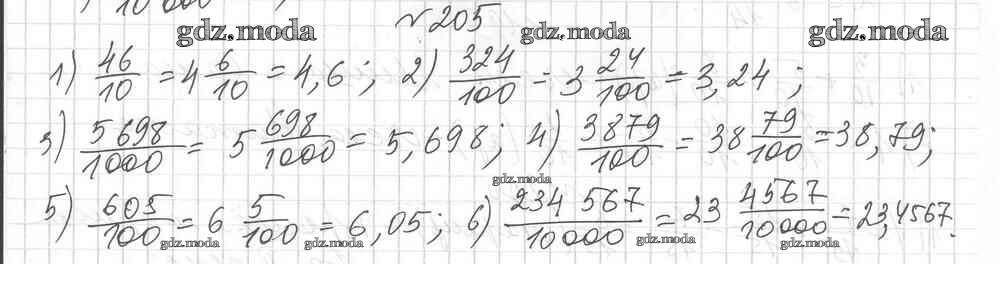 10 000
№ 205
gdz.moda gdz.moda gdz.moda
1) 46/10 = 4 6/10 = 4,6; 2) 324/100 = 3 24/100 = 3,24;
3) 5 698/1000 = 5 698/1000 = 5,698; 4) 3879/100 = 38 79/100 = 38,79;
gdz.moda
5) 605/100 = 6 5/100 = 6,05; 6) 234 567/10 000 = 23 4567/10 000 = 23,4567.
gdz.moda gdz.moda gdz.moda gdz.moda